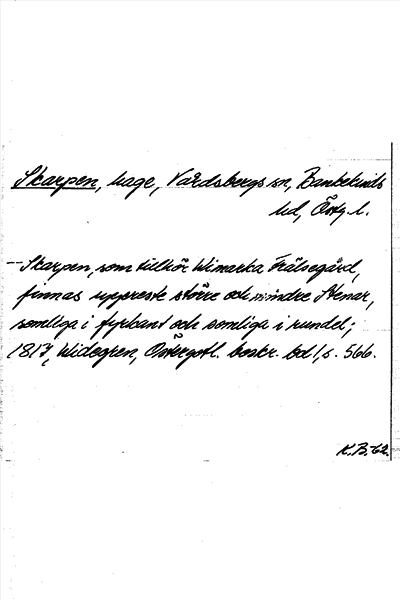 Skarpen, hage, Vårdsbergs sn, Bankekinds
hd, Östg. l.
- Skarpen, som tillhör Wimarka Frälsegård,
finnas uppreste större och mindre Stenar,
somliga i fyrkant och somliga i rundel;
1817, Widegren, Östergötl. beskr. bd 1, s. 566.
K.B.-62.